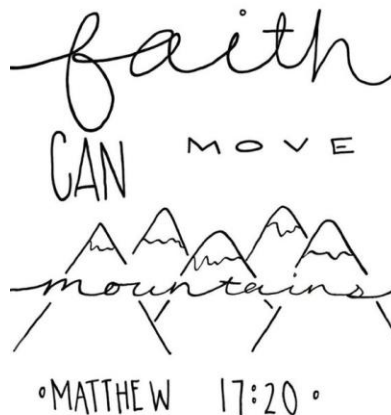 faith
CAN MOVE
mountains
•MATTHEW 17:20•